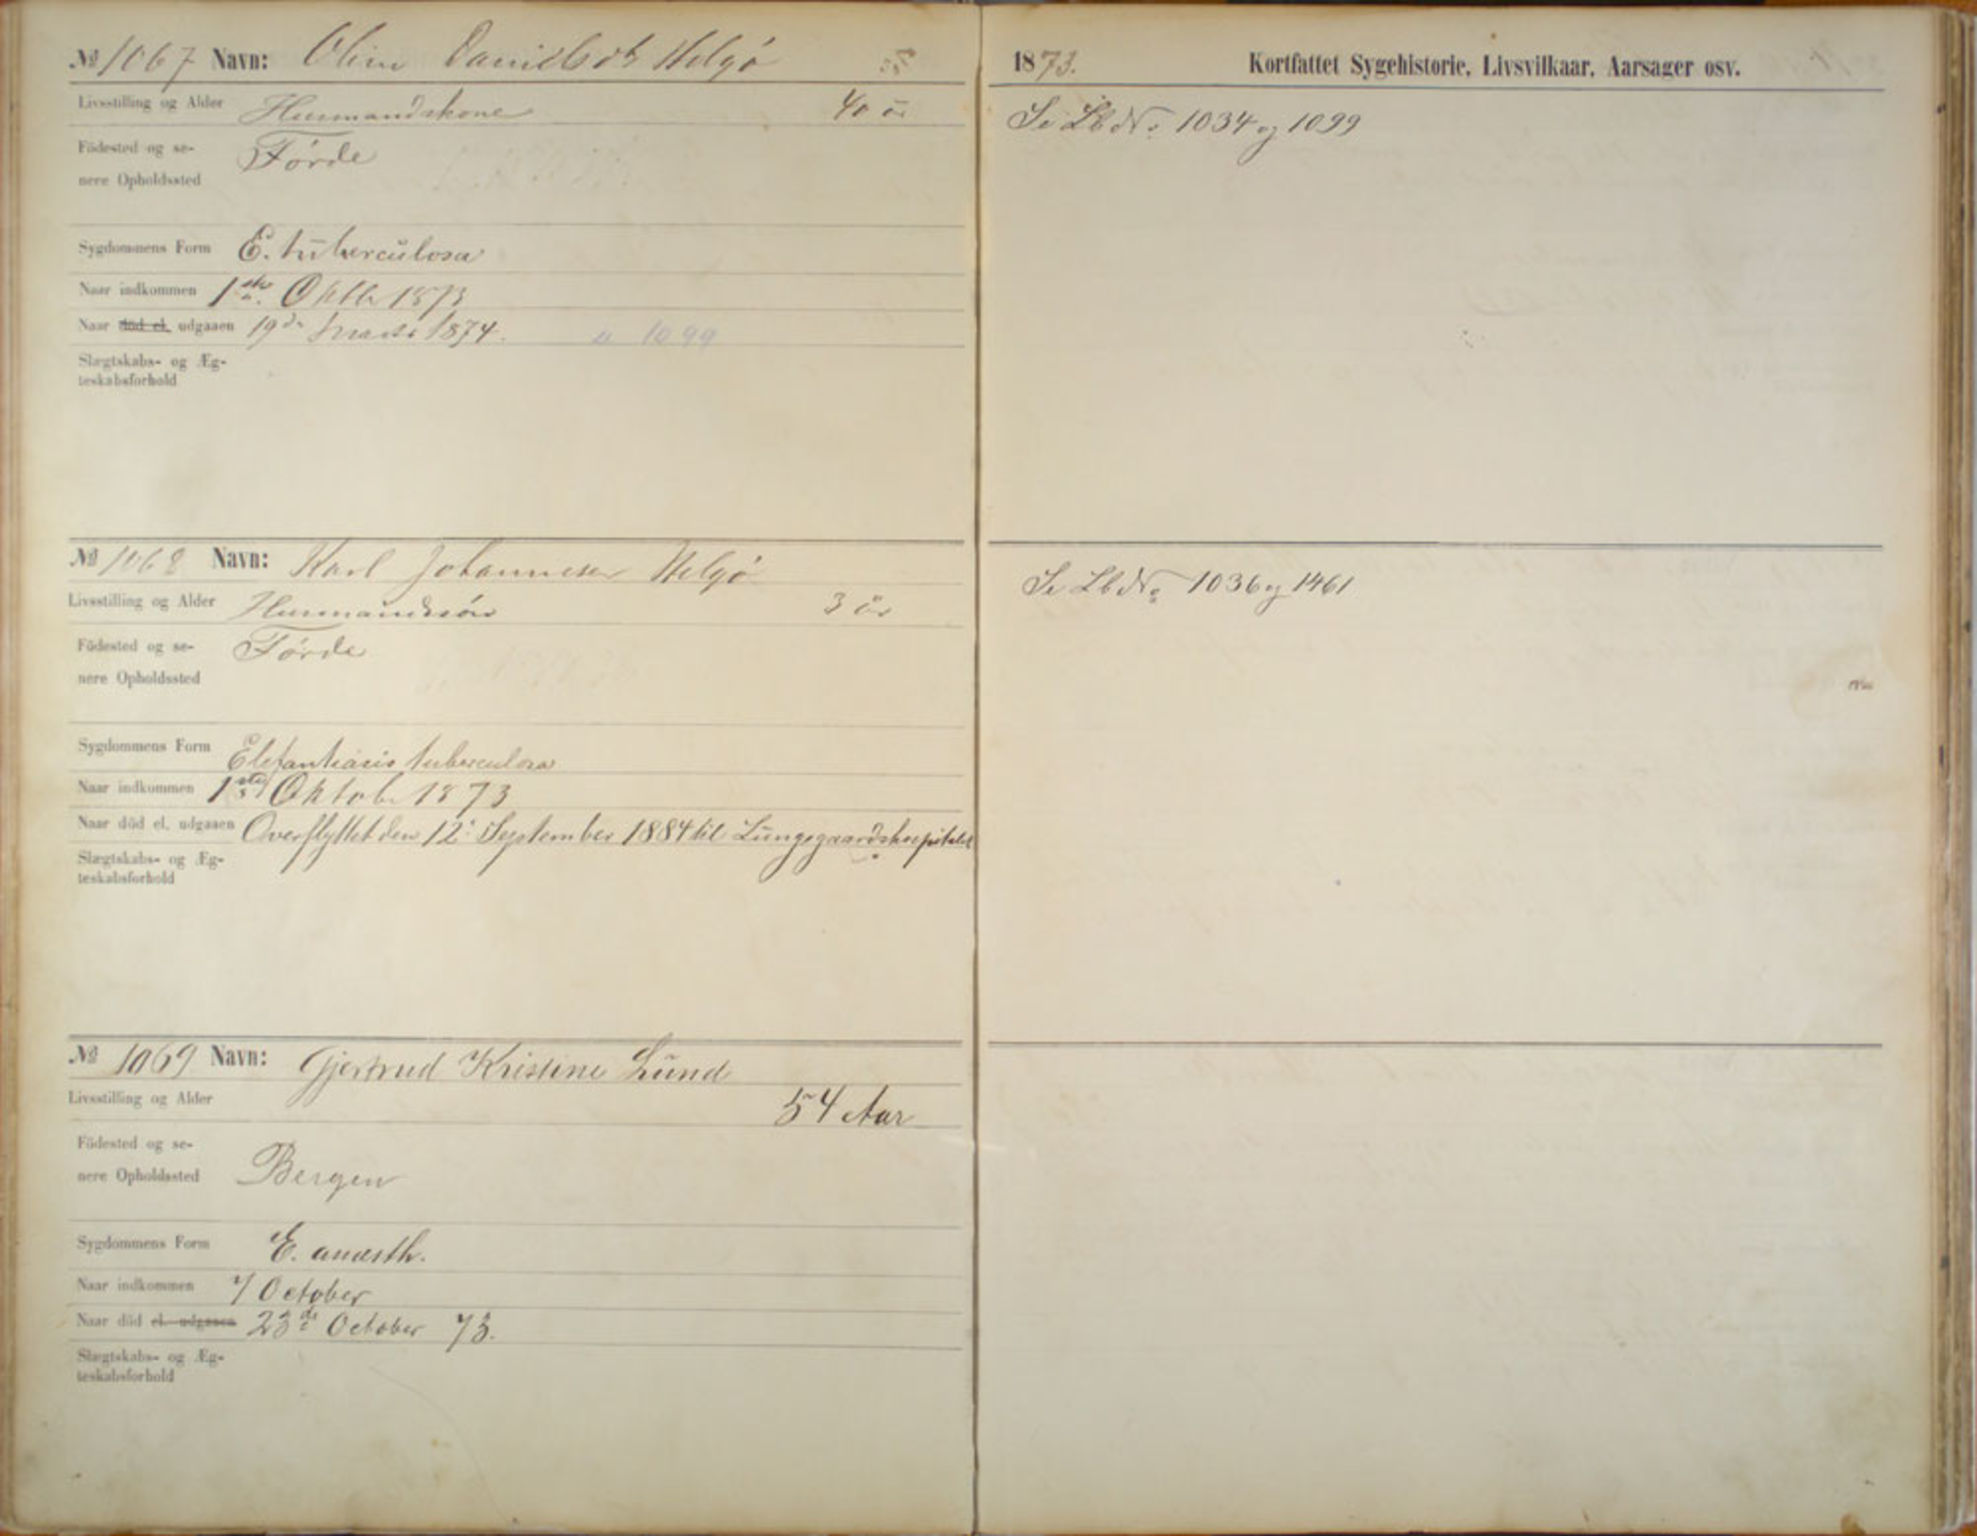 № 1067 Navn: Oline Danielsdtr Helgö
Livsstilling og Alder Husmandskone 40 år
Födested og se-
nere Opholdssted Förde
Sygdommens Form E. tuberculosa
Naar indkommen 1ste Oktb. 1873
Naar död el. udgaaen 19de Marts 1874. 1099
Slægtskabs- og Æg-
teskabsforhold
№ 1068 Navn: Karl Johannesen Helgö
Livsstilling og Alder Husmandssön 3 år
Födested og se-
nere Opholdssted Förde
Sygdommens Form Elefantiasis tuberculosa
Naar indkommen 1ste Oktob. 1873
Naar död el. udgaaen Overflyttet den 12. September 1884 til Lungegaardshospitalet
Slægtskabs- og Æg-
teskabsforhold
№ 1069 Navn: Gjertrud Kristine Lund
Livsstilling og Alder 54 Aar
Födested og se-
nere Opholdssted Bergen
Sygdommens Form E. anæsth.
Naar indkommen October
Naar död el. udgaaen 23de October 73.
Slægtskabs- og Æg-
teskabsforhold
1873. Kortfattet Sygehistorie, Livsvilkaar, Aarsager osv.
Se Lb No 1034 og 1099
Se Lb No 1036 og 1461